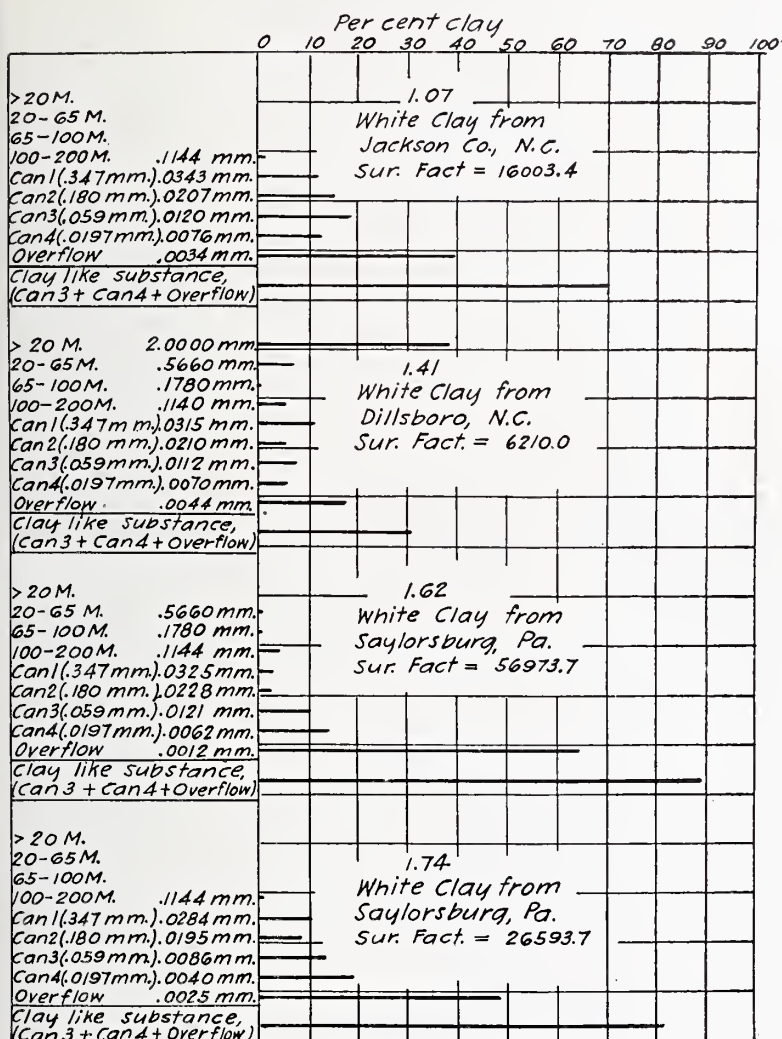 Per cent clay
0 10 20 30 40 50 60 70 80 90 100
>20M.
20-65M.
65-100M.
100-200M. .1144 mm.
Can1(.347mm.).0343 mm.
Can2(.180mm.).0207mm.
Can3(.059mm.).0120 mm.
Can4(.0197mm.).0076mm.
Overflow .0034 mm.
Clay like substance,
(Can3+ Can4+Overflow)
1.07
White Clay from
Jackson Co., N.C.
Sur. Fact = 16003.4
> 20 M. 2.0000 mm.
20-65M. .5660 mm.
65-100M. .1780mm.
100-200M. .1140 mm.
Can1(.347mm.).0315 mm.
Can2(.180 mm.).0210mm.
Can3(.059mm.).0112 mm.
Can4(.0197mm.).0070mm.
Overflow .0044 mm.
Clay like substance,
(Can3+ Can4+Overflow)
1.41
White Clay from
Dillsboro, N.C.
Sur. Fact. = 6210.0
>20M.
20-65 M. .5660mm.
65-100M. .1780 mm.
100-200M. .1144 mm.
Can1(.347mm.).0325mm.
Can2(.180 mm.).0228mm.
Can3(.059mm.).0121 mm.
Can4(.0197mm.).0062mm.
Overflow .0012 mm.
Clay like substance,
(Can 3 + Can4+Overflow)
1.62
White Clay from
Saylorsburg, Pa.
Sur. Fact = 56973.7
>20 M.
20-65M.
65-100M.
100-200M. .1144mm.
Can1(.347mm.).0284mm.
Can2(.180mm.).0195mm.
Can3(.059mm.).0086mm.
Can4(.0197mm.).0040mm.
Overflow .0025 mm.
Clay like substance,
(Can 3 + Can4 + Overflow)
1.74
White Clay from
Saylorsburg, Pa.
Sur. Fact. = 26593.7